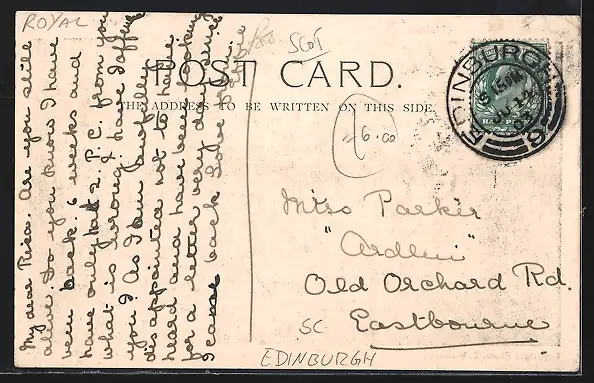 ROYAL
SCOT
POST CARD.
THE ADDRESS TO BE WRITTEN ON THIS SIDE.
6.00
My dear Rica. Are you still
alive do you know I have
been back 6 weeks and
have only had 2. P.C. from you
what is wrong. I have I offended
you? As I am awfully
disappointed not to have
heard and have been looking
for a letter very day since
I came back Love
EDINBURGH
5 15 PM
JU 12
HALFPENNY
Miss Parker
"Ardlui"
Old Orchard Rd.
SC Eastbourne
EDINBURGH